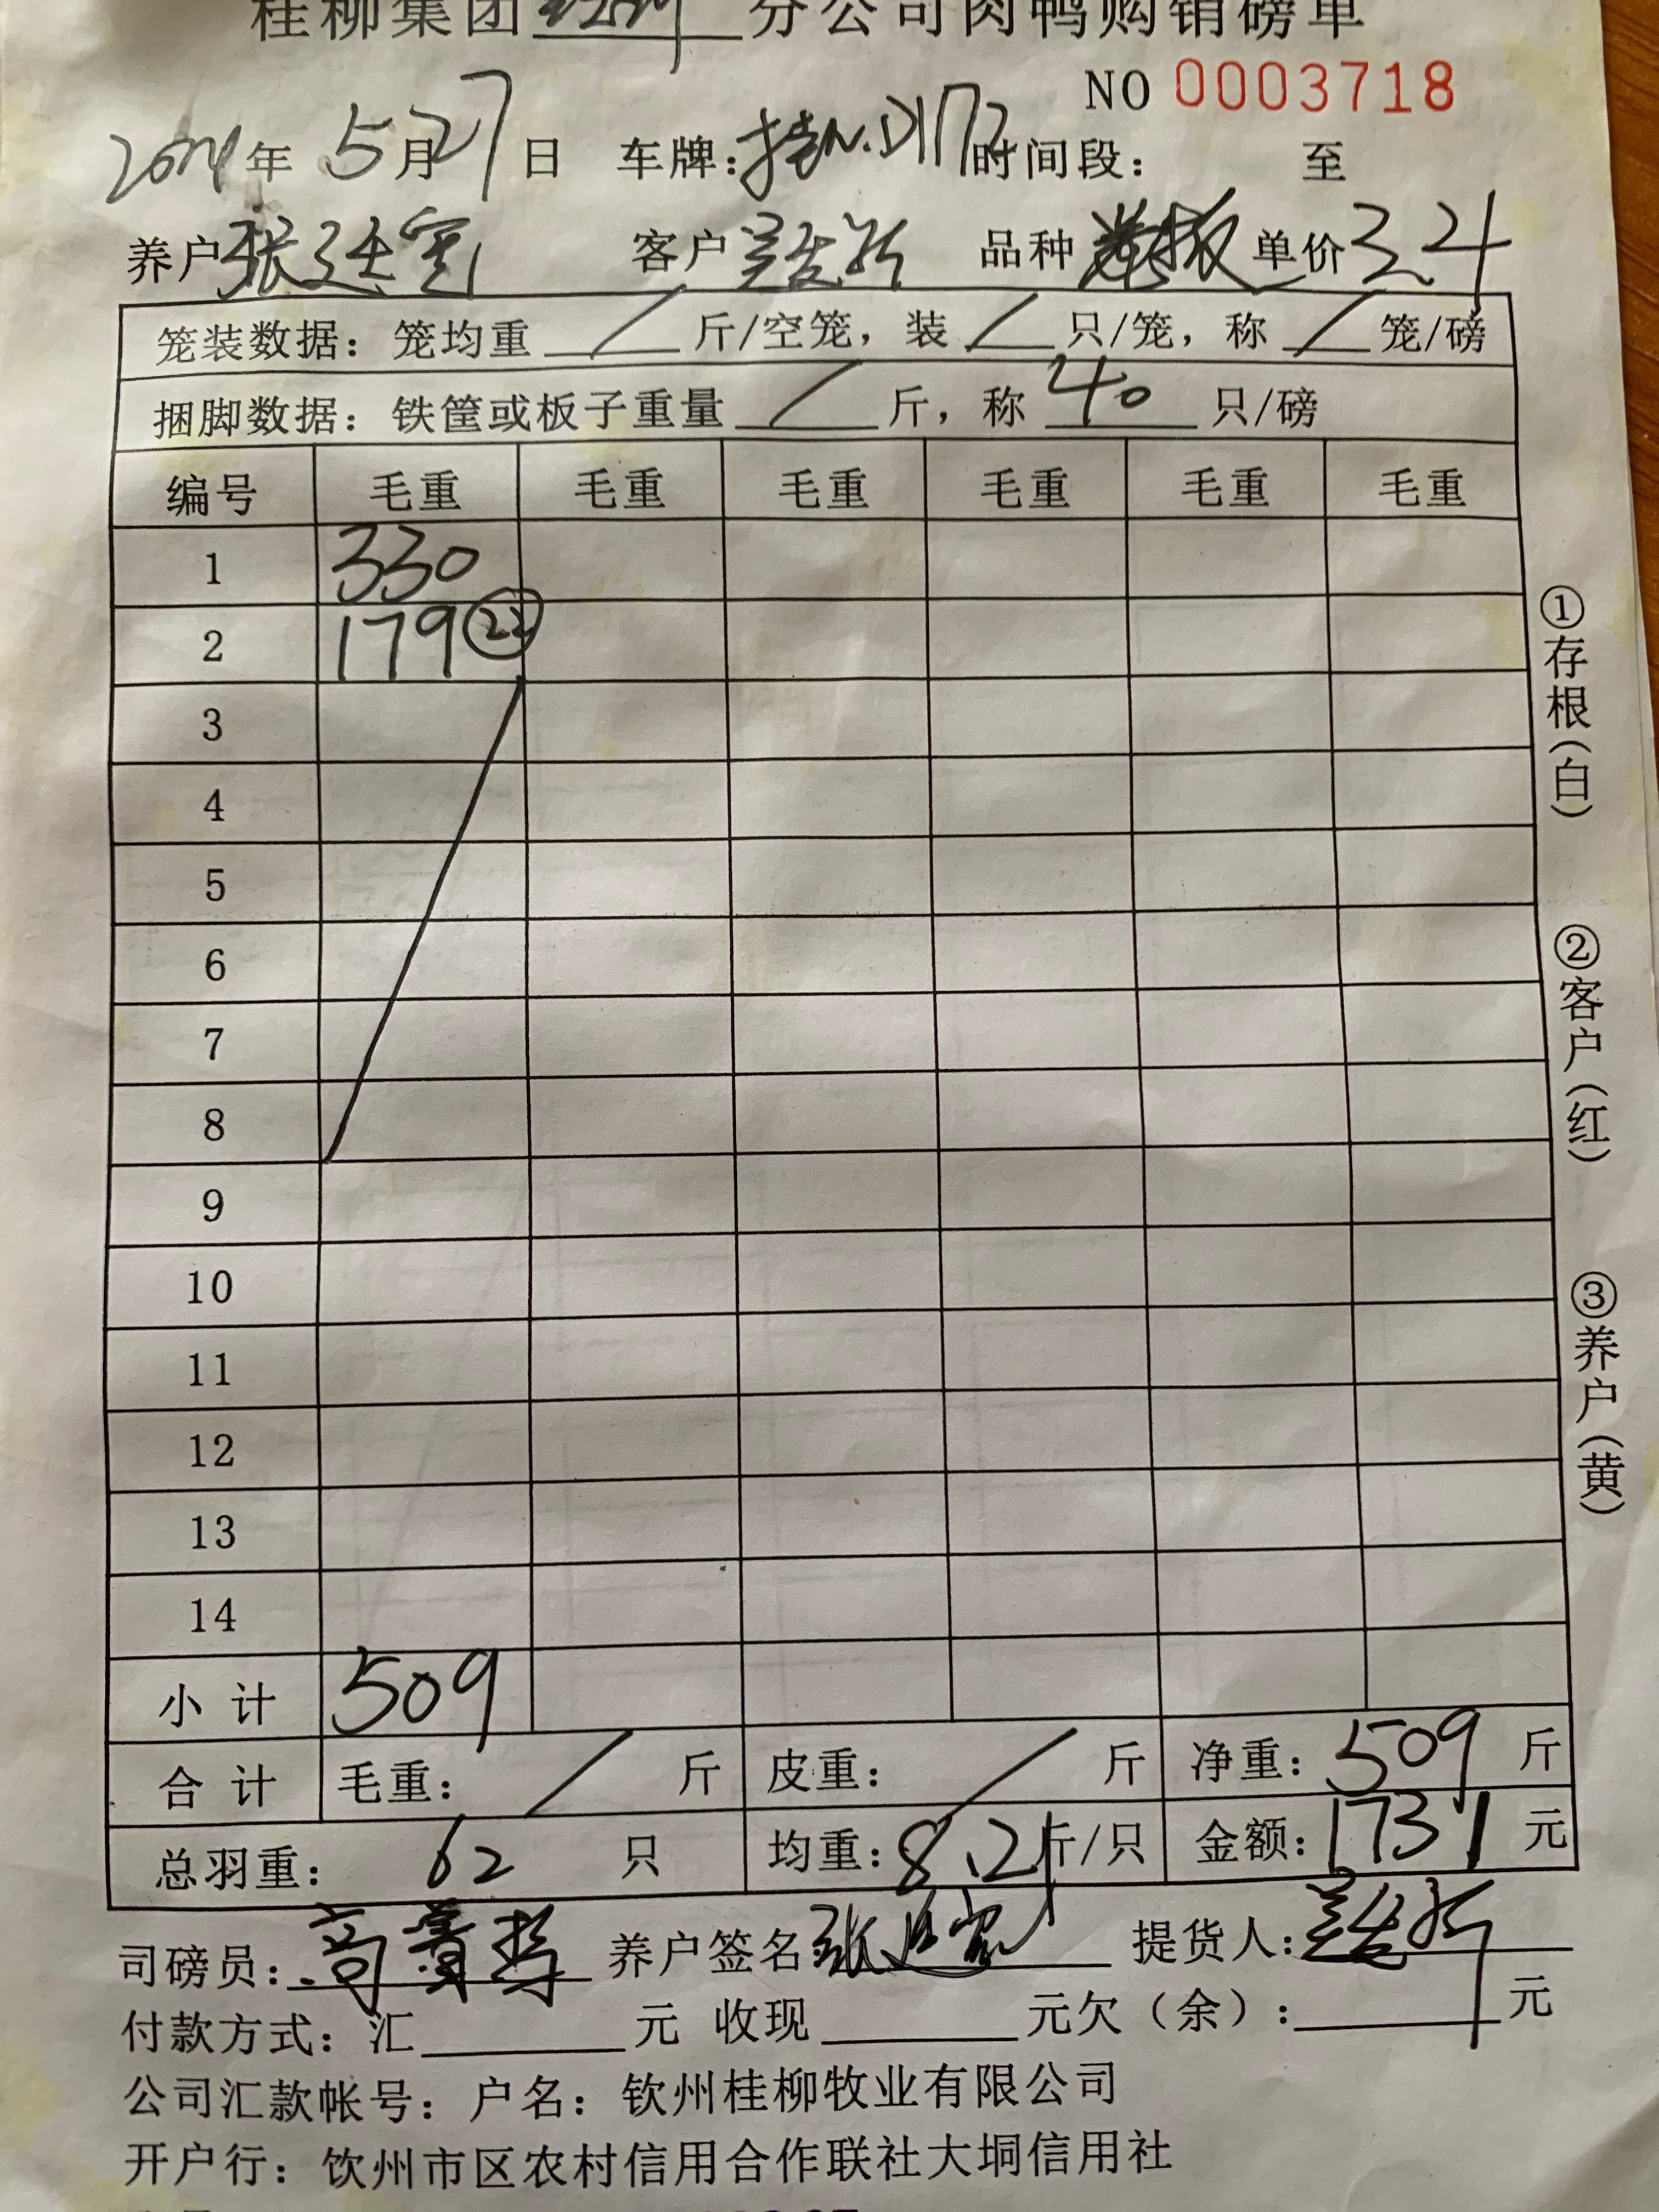 桂柳集团 分公司肉鸭购销磅单
NO 0003718
2024年 5月27日 车牌: 时间段: 至
养户 张廷宽 客户 品种 单价 3.4
笼装数据: 笼均重 / 斤/空笼, 装 / 只/笼, 称 / 笼/磅
捆脚数据: 铁筐或板子重量 / 斤, 称 40 只/磅
编号 毛重 毛重 毛重 毛重 毛重 毛重
1 330
2 179 ㉒
3
4
5
6
7
8
9
10
11
12
13
14
小计 509
合计 毛重: / 斤 皮重: / 斤 净重: 509 斤
总羽重: 62 只 均重: 8.21 斤/只 金额: 1731 元
司磅员: 养户签名 张廷宽 提货人:
付款方式: 汇 元 收现 元欠(余): 元
公司汇款帐号: 户名: 钦州桂柳牧业有限公司
开户行: 饮州市区农村信用合作联社大垌信用社
①存根(白)
②客户(红)
③养户(黄)